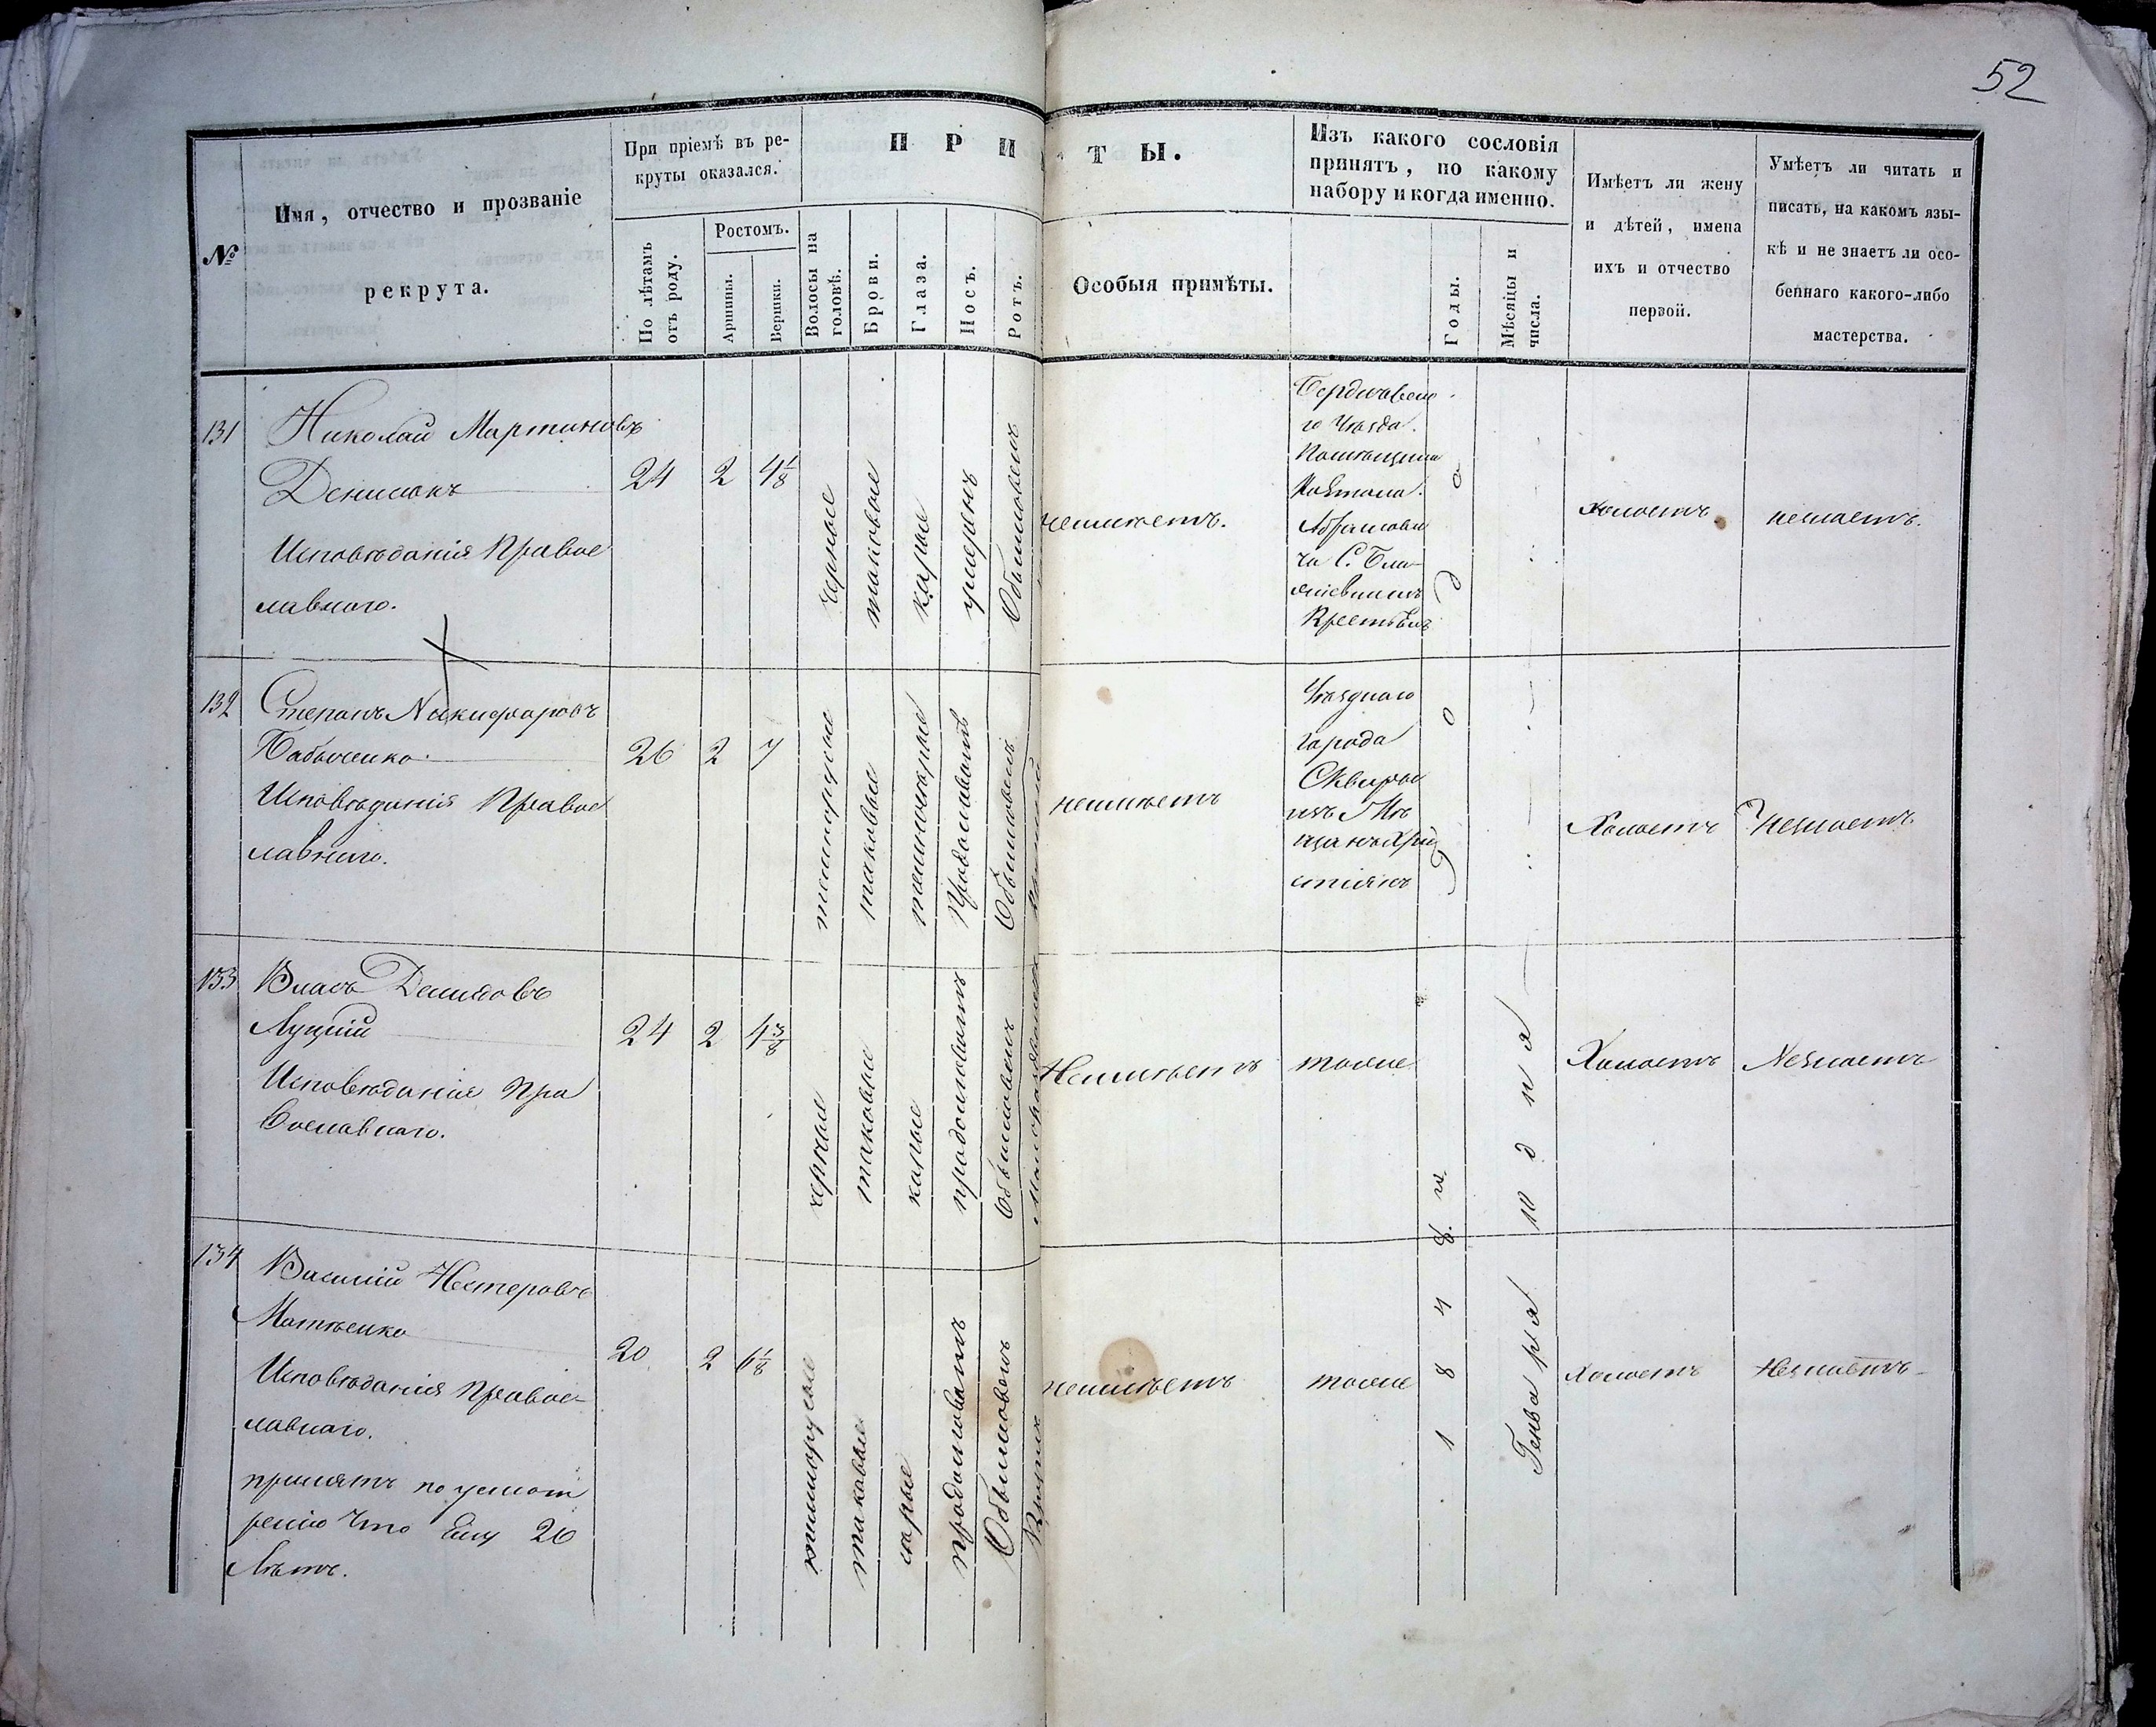 52
№
Имя, отчество и прозваніе
рекрута.
При пріемѣ въ ре-
круты оказался.
По лѣтамъ
отъ роду.
Ростомъ.
Аршины.
Вершки.
П Р И
Волосы на
головѣ.
Брови.
Глаза.
Носъ.
Ротъ.
Т Ы.
Особыя примѣты.
Изъ какого сословія
принятъ, по какому
набору и когда именно.
Годы.
Мѣсяцы и
числа.
Имѣетъ ли жену
и дѣтей, имена
ихъ и отчество
первой.
Умѣетъ ли читать и
писать, на какомъ язы-
кѣ и не знаетъ ли осо-
беннаго какого-либо
мастерства.
131
Николай Мартиновъ
Денисюкъ
Исповѣданія Правос
лавнаго.
24
2
4 1/8
черные
таковые
карые
умеренъ
Обыкновенъ
неимѣетъ.
Бердичевска
го Уѣзда.
Помѣщика
Абрамови
ча С.
Крестьянъ
холостъ
незнаетъ.
132
Степанъ Никифоровъ
Бабыченко
Исповѣданія Правос
лавнаго.
26
2
7
темнорусые
таковые
темносерые
Продолговатъ
Обыкновенъ
неимѣетъ
Уѣзднаго
города
Сквиры
изъ Мѣ
щанъ Хри
стіянъ
Холостъ
Незнаетъ
133
Власъ Демидовъ
Луцкій
Исповѣданія Пра
вославнаго.
24
2
4 3/8
черные
таковые
карые
продолговатъ
Обыкновенъ
Неимѣетъ
тоже
Холостъ
Незнаетъ
134
Василій Нестеровъ
Матвѣенко
Исповѣданія Правос-
лавнаго.
принятъ по усмот
ренію что Ему 20
Лѣтъ.
20
2
6 1/8
темнорусые
таковые
серые
продолговатъ
Обыкновенъ
неимѣетъ
тоже
1 8 4 8. г о д а
Генваря 10 дня
холостъ
Незнаетъ